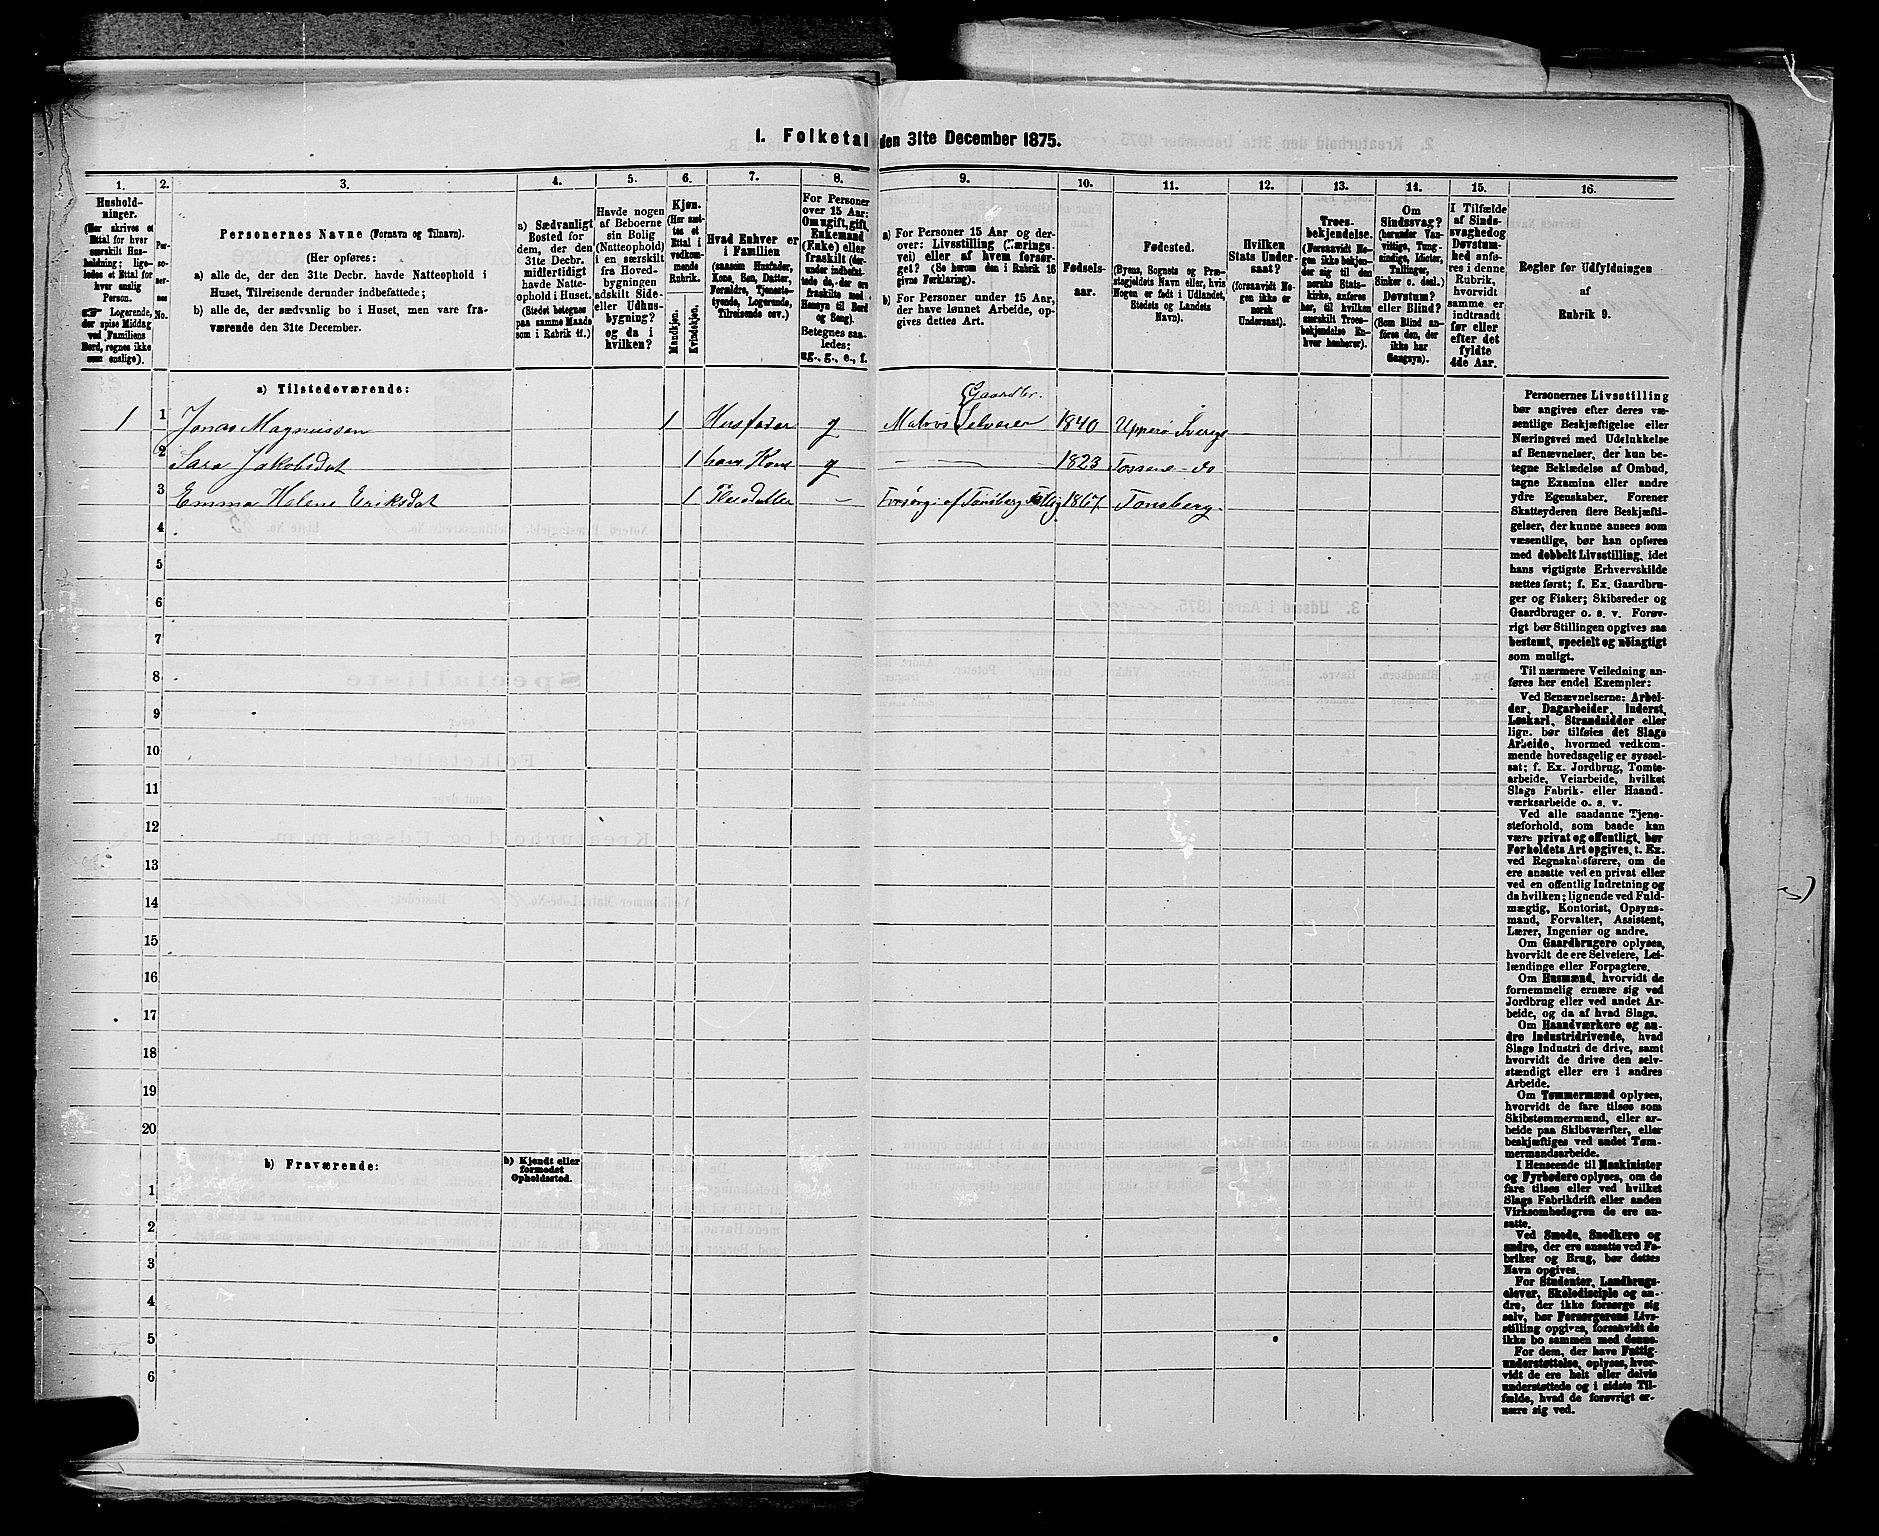 1. Folketal den 31te December 1875.
1. 2. 3. 4. 5. 6. 7. 8. 9. 10. 11. 12. 13. 14. 15. 16.
Hushold-
ninger.
(Her skrives et
Ettal for hver
særskilt Hus-
holdning; lige-
ledes et Ettal for
hver enslig
Person.
Logerende,
der spise Middag
ved Familiens
Bord, regnes ikke
som enslige).
Per-
so-
ner-
nes
No.
Personernes Navne (Fornavn og Tilnavn).
(Her opføres:
a) alle de, der den 31te Decbr. havde Natteophold i
Huset, Tilreisende derunder indbefattede;
b) alle de, der sædvanlig bo i Huset, men vare fra-
værende den 31te December.
a) Sædvanligt
Bosted for
dem, der den
31te Decbr.
midlertidigt
havde Natte-
ophold i Huset.
(Stedet betegnes
paa samme Maade
som i Rubrik 11.)
Havde nogen
af Beboerne
sin Bolig
(Natteophold)
i en særskilt
fra Hoved-
bygningen
adskilt Side-
eller Udhus-
bygning?
og da i
hvilken?
Kjøn.
(Her sæt-
tes et
Ettal i
vedkom-
mende
Rubrik.
Mandkjøn.
Kvindekjøn.
Hvad Enhver er
i Familien
(saasom Husfader,
Kone, Søn, Datter,
Forældre, Tjeneste-
tyende, Logerende,
Tilreisende osv.)
For Personer
over 15 Aar:
Om ugift, gift,
Enkemand
(Enke) eller
fraskilt (der-
under indbefat-
tede de, der ere
fraskilte med
Hensyn til Bord
og Seng).
Betegnes saa-
ledes:
ug., g., e., f.
a) For Personer 15 Aar og der-
over: Livsstilling (Nærings-
vei) eller af hvem forsør-
get? (Se herom den i Rubrik 16
givne Forklaring).
b) For Personer under 15 Aar,
der have lønnet Arbeide, op-
gives dettes Art.
Fødsels-
aar.
Fødested.
(Byens, Sognets og Præ-
stegjeldets Navn eller, hvis
Nogen er født i Udlandet,
Stedets og Landets
Navn).
Hvilken
Stats Under-
saat?
(forsaavidt No-
gen ikke er
norsk
Undersaat).
Troes-
bekjendelse.
(Forsaavidt No-
gen ikke bekjen-
der sig til den
norske Stats-
kirke, anføres
her, til hvilken
særskilt Troes-
bekjendelse En-
hver henhører).
Om
Sindssvag?
(herunder Van-
vittige, Tung-
sindige, Idioter,
Tullinger,
Sinker o. desl.)
Døvstum?
eller Blind?
(Som Blind an-
føres den, der
ikke har
Gangsyn).
I Tilfælde
af Sinds-
svaghed og
Døvstum-
hed anfø-
res i denne
Rubrik,
hvorvidt
samme er
indtraadt
før eller
efter det
fyldte
4de Aar.
Regler for Udfyldningen
af
Rubrik 9.
a) Tilstedeværende:
Gaardbr.
1 1 Jonas Magnussen 1 Husfader g Matros Selveier 1840 Upperö Sverge
2 Sara Jakobsdat 1 hans Kone g — 1823 Tossene - do
3 Emma Helene Eriksdat 1 Pleiedatter - Forsørg. af Tønsberg Fattig 1867 Tønsberg
4
5
6
7
8
9
10
11
12
13
14
15
16
17
18
19
20
b) Fraværende:
b) Kjendt eller
formodet
Opholdssted.
1
2
3
4
5
6
Personernes Livsstilling
bør angives efter deres væ-
sentlige Beskjæftigelse eller
Næringsvei med Udelukkelse
af Benævnelser, der kun be-
tegne Beklædelse af Ombud,
tagne Examina eller andre
ydre Egenskaber. Forener
Skatteyderen flere Beskjæfti-
gelser, der kunne ansees som
væsentlige, bør han opføres
med dobbelt Livsstilling, idet
hans vigtigste Erhvervskilde
sættes først; f. Ex. Gaardbru-
ger og Fisker; Skibsreder og
Gaardbruger o. s. v. Forøv-
rigt bør Stillingen opgives saa
bestemt, specielt og nøiagtigt
som muligt.
Til nærmere Veiledning an-
føres her endel Exempler:
Ved Benævnelserne: Arbei-
der, Dagarbeider, Inderst,
Løskarl, Strandsidder eller
lign. bør tilføies det Slags
Arbeide, hvormed vedkom-
mende hovedsagelig er syssel-
sat; f. Ex. Jordbrug, Tomte-
arbeide, Veiarbeide, hvilket
Slags Fabrik- eller Haand-
værksarbeide o. s. v.
Ved alle saadanne Tjene-
steforhold, som baade kan
være privat og offentligt, bør
Forholdets Art opgives, t. Ex.
ved Regnskabsførere, om de
ere ansatte ved en privat eller
ved en offentlig Indretning og
da hvilken; lignende ved Fuld-
mægtig, Kontorist, Opsyns-
mand, Forvalter, Assistent,
Lærer, Ingeniør og andre.
Om Gaardbrugere oplyses,
hvorvidt de ere Selveiere, Lei-
lændinge eller Forpagtere.
Om Husmænd, hvorvidt de
fornemmelig ernære sig ved
Jordbrug eller ved andet Ar-
beide, og da af hvad Slags.
Om Haandværkere og an-
dre Industridrivende, hvad
Slags Industri de drive, samt
hvorvidt de drive den selv-
stændigt eller ere i andres
Arbeide.
Om Tømmermænd oplyses,
hvorvidt de fare tilsøs som
Skibstømmermænd, eller ar-
beide paa Skibsværfter, eller
beskjæftiges ved andet Tøm-
mermandsarbeide.
I Henseende til Maskinister
og Fyrbødere oplyses, om de
fare tilsøs eller ved hvilket
Slags Fabrikdrift eller anden
Virksomhedsgren de ere an-
satte.
Ved Smede, Snedkere og
andre, der ere ansatte ved Fa-
briker og Brug, bør dettes
Navn opgives.
For Studenter, Landbrugs-
elever, Skoledisciple og an-
dre, der ikke forsørge sig
selv, bør Forsørgerens Livs-
stilling opgives, forsaavidt de
ikke bo sammen med denne.
For dem, der have Fattig-
understøttelse, oplyses, hvor-
vidt de ere helt eller delvis
understøttede og i sidste Til-
fælde, hvad de forøvrigt er-
nære sig ved.